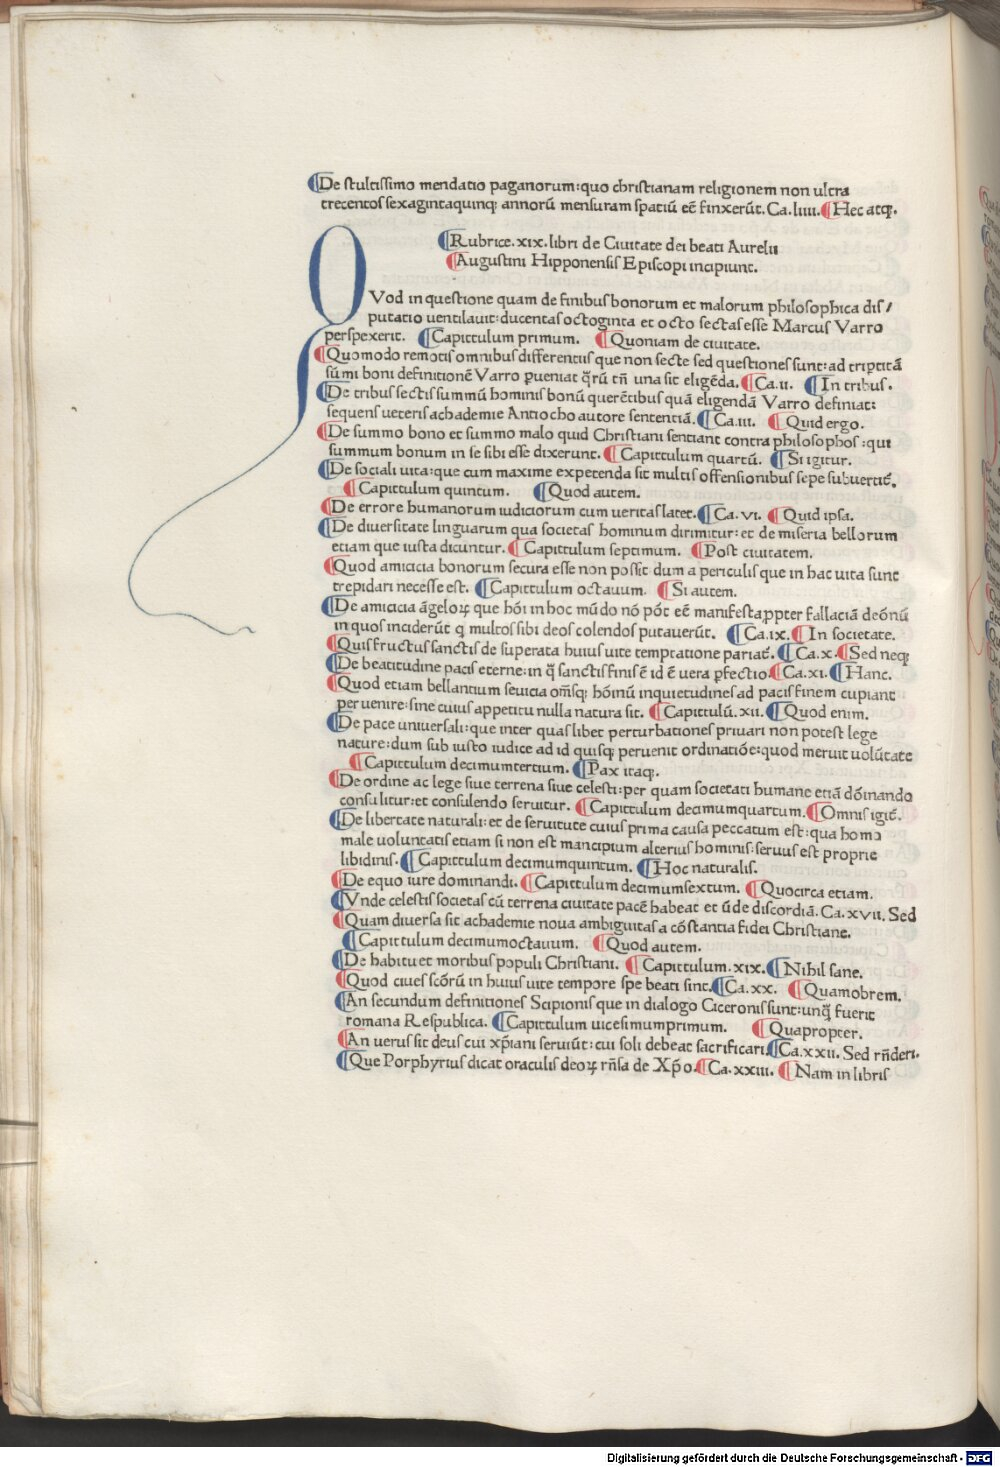 ¶De stultissimo mendatio paganorum:quo christianam religionem non ultra
trecentos sexagintaquinq; annorũ mensuram spatiũ eẽ finxerũt. Ca. liiii. ¶Hec atq;.
¶Rubrice. xix. libri de Ciuitate dei beati Aurelii
¶Augustini Hipponensis Episcopi incipiunt.
QVod in questione quam de finibus bonorum et malorum philosophica dis/
putatio uentilauit: ducentas octoginta et octo sectas esse Marcus Varro
perspexerit. ¶Capittulum primum. ¶Quoniam de ciuitate.
¶Quomodo remotis omnibus differentiis que non secte sed questiones sunt: ad triptitã
sũmi boni definitionẽ Varro ꝑueniat q̃rũ tñ una sit eligẽda. ¶Ca. ii. ¶In tribus.
¶De tribus sectis summũ hominis bonũ querẽtibus quã eligendã Varro definiat:
sequens ueteris achademie Antiocho autore sententiã. ¶Ca. iii. ¶Quid ergo.
¶De summo bono et summo malo quid Christiani sentiant contra philosophos: qui
summum bonum in se sibi esse dixerunt. ¶Capittulum quartũ. ¶Si igitur.
¶De sociali uita: que cum maxime expetenda sit multis offensionibus sepe subuertit̃.
¶Capittulum quintum. ¶Quod autem.
¶De errore humanorum iudiciorum cum ueritas latet. ¶Ca. vi. ¶Quid ipsa.
¶De diuersitate linguarum qua societas hominum dirimitur: et de miseria bellorum
etiam que iusta dicuntur. ¶Capittulum septimum. ¶Post ciuitatem.
¶Quod amicicia bonorum secura esse non possit dum a periculis que in hac uita sunt
trepidari necesse est. ¶Capittulum octauum. ¶Si autem.
¶De amicicia ãgeloꝝ que hõi in hoc mũdo nõ põt eẽ manifesta ꝓpter fallaciã deõnũ
in quos inciderũt q multos sibi deos colendos putauerũt. ¶Ca. ix. ¶In societate.
¶Quis fructus sanctis de superata huius uite temptatione pariat̃. ¶Ca. x. ¶Sed neq;
¶De beatitudine pacis eterne: in q̃ sanctis finis ẽ id ẽ uera ꝑfectio. ¶Ca. xi. ¶Hanc.
¶Quod etiam bellantium seuicia om̃sq; hõinũ inquietudines ad pacis finem cupiant
peruenire: sine cuius appetitu nulla natura sit. ¶Capittulũ. xii. ¶Quod enim.
¶De pace uniuersali: que inter quaslibet perturbationes priuari non potest lege
nature: dum sub iusto iudice ad id quisq; peruenit ordinatiõe: quod meruit uolũtate
¶Capittulum decimumtertium. ¶Pax itaq;.
¶De ordine ac lege siue terrena siue celesti: per quam societati humane etiã dõinando
consulitur: et consulendo seruitur. ¶Capittulum decimumquartum. ¶Omnis igit̃.
¶De libertate naturali: et de seruitute cuius prima causa peccatum est: qua homo
male uoluntatis etiam si non est mancipium alterius hominis: seruus est proprie
libidinis. ¶Capittulum decimumquintum. ¶Hoc naturalis.
¶De equo iure dominandi. ¶Capittulum decimumsextum. ¶Quocirca etiam.
¶Vnde celestis societas cũ terrena ciuitate pacẽ habeat et ũde discordiã. Ca. xvii. Sed
¶Quam diuersa sit achademie noua ambiguitas a cõstantia fidei Christiane.
¶Capittulum decimumoctauum. ¶Quod autem.
¶De habitu et moribus populi Christiani. ¶Capittulum. xix. ¶Nihil sane.
¶Quod ciues scõrũ in huius uite tempore spe beati sint. ¶Ca. xx. ¶Quamobrem.
¶An secundum definitiones Scipionis que in dialogo Ciceronis sunt: unq̃ fuerit
romana Respublica. ¶Capittulum uicesimumprimum. ¶Quapropter.
¶An uerus sit deus cui xp̃iani seruiũt: cui soli debeat sacrificari. ¶Ca. xxii. Sed rñderi.
¶Que Porphyrius dicat oraculis deoꝝ rñsa de Xp̃o. ¶Ca. xxiii. ¶Nam in libris
Digitalisierung gefördert durch die Deutsche Forschungsgemeinschaft - DFG